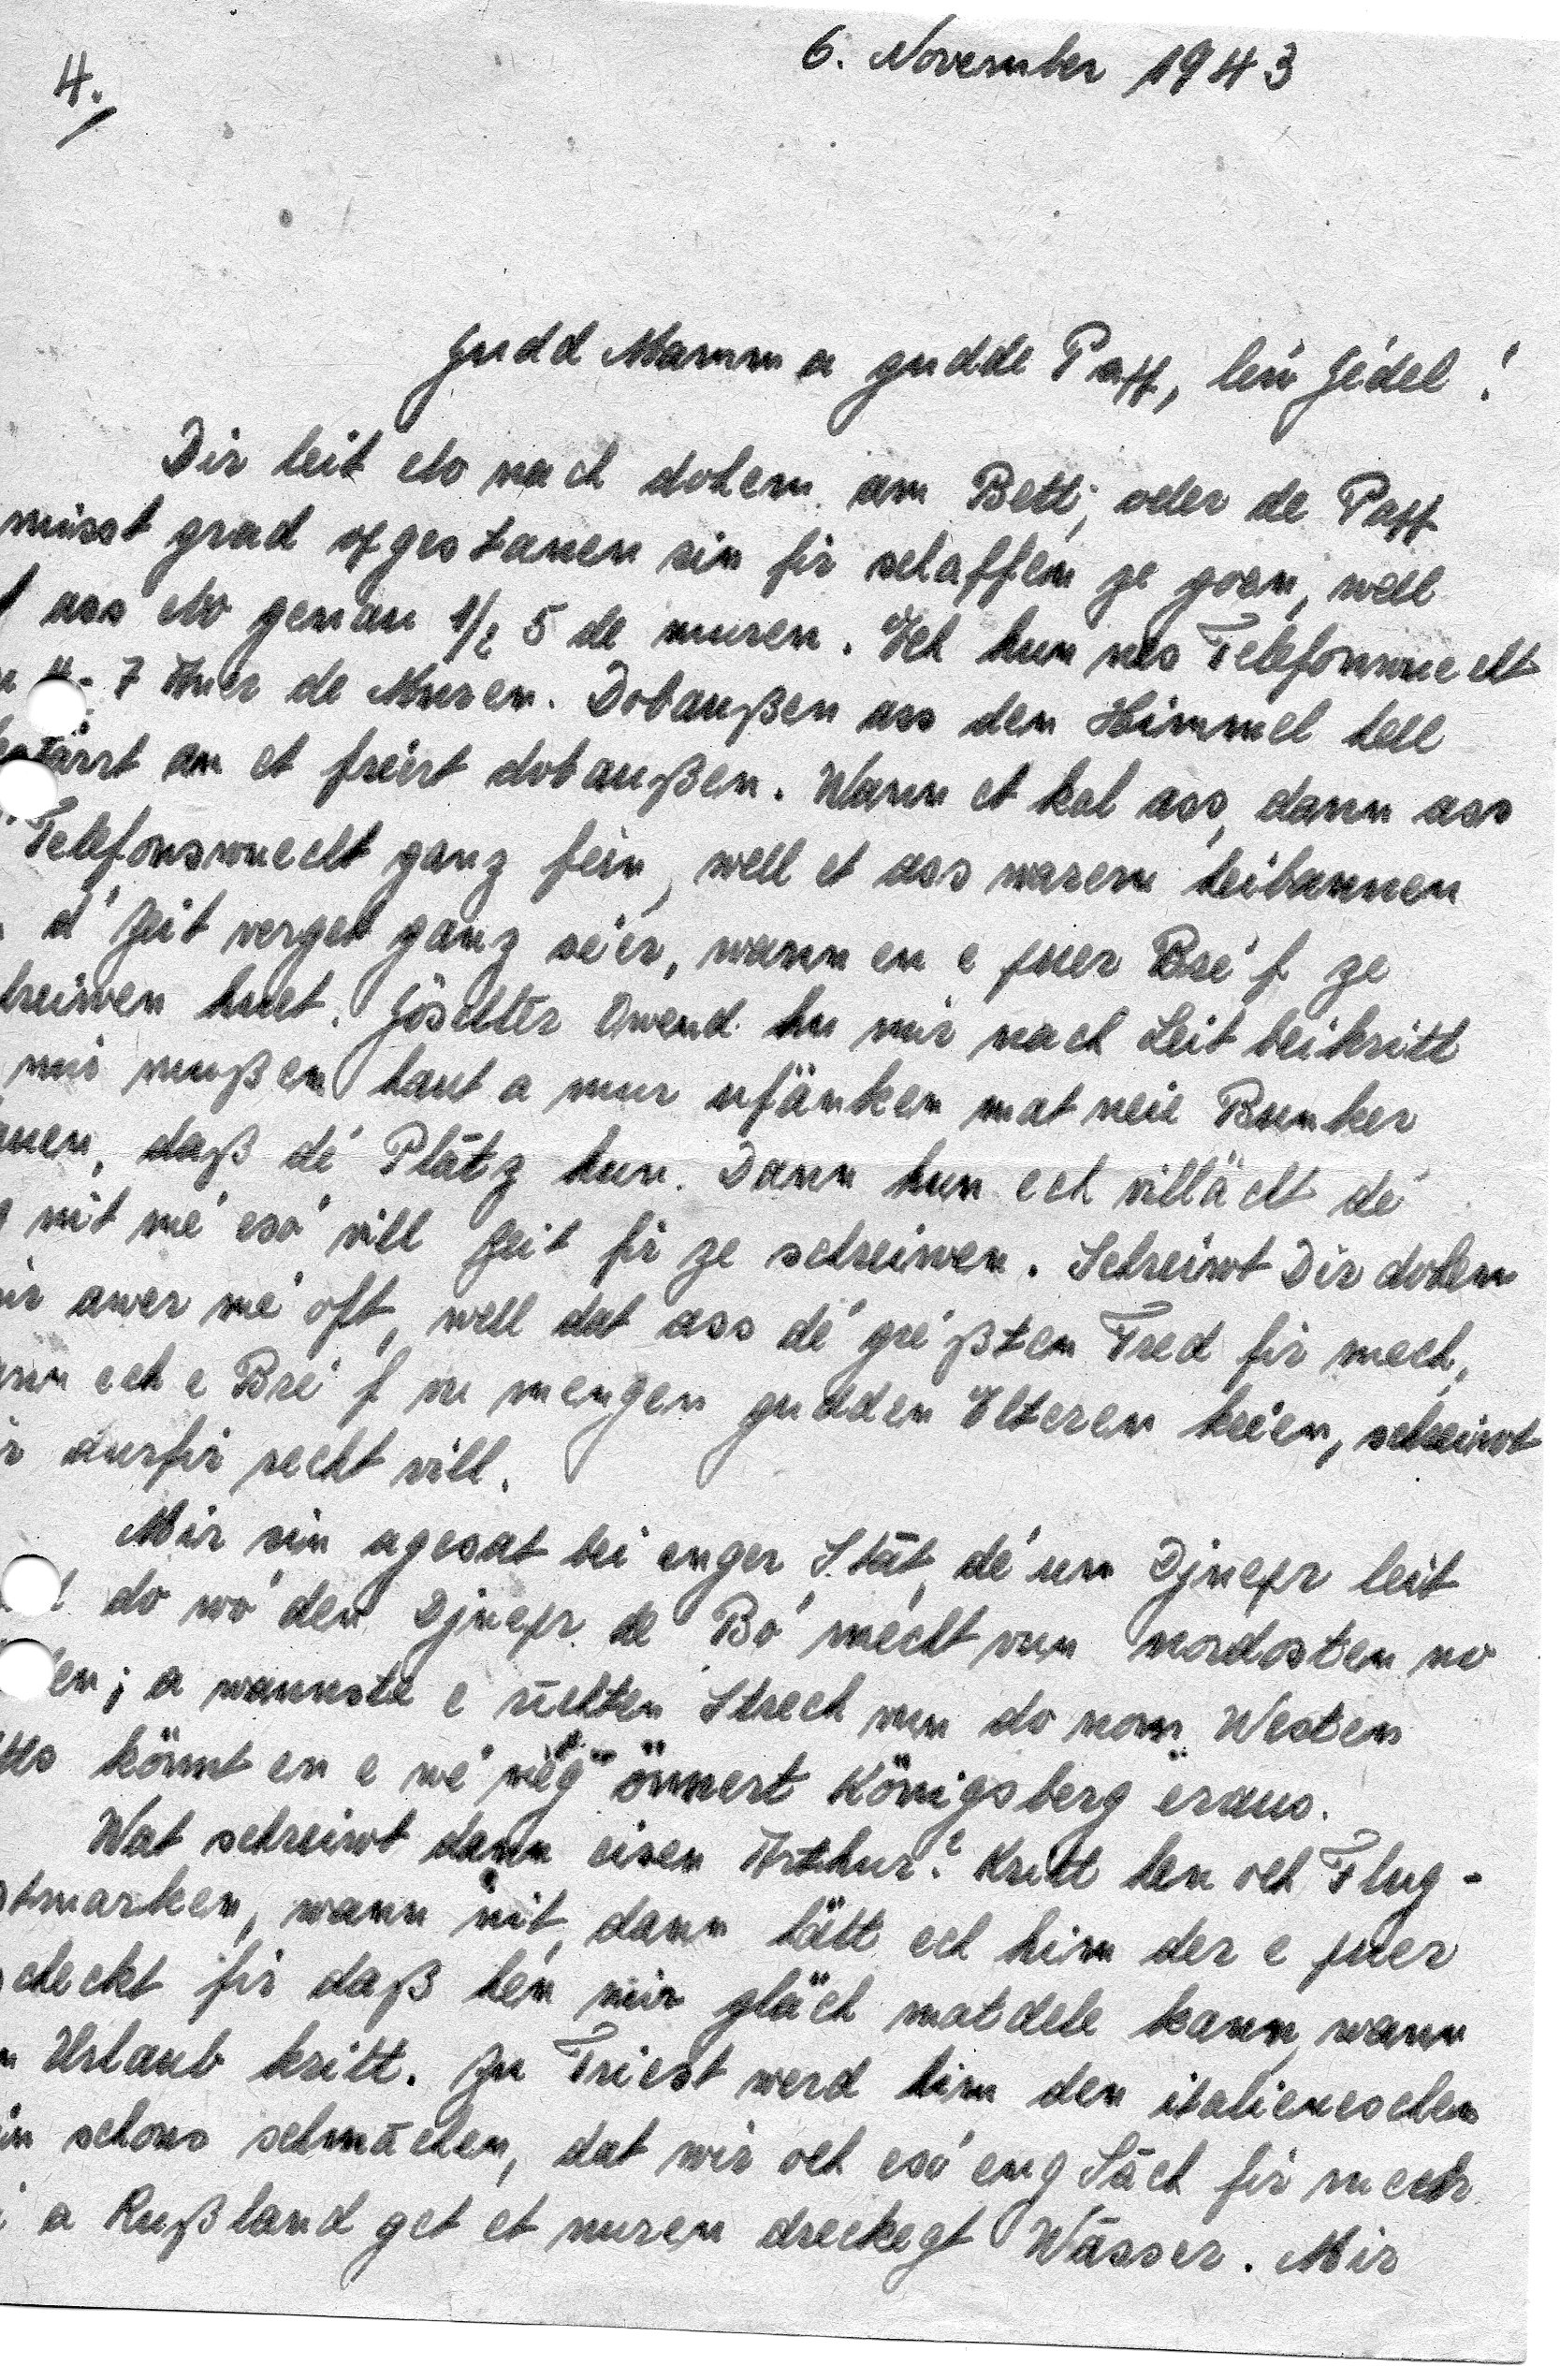 6. November 1943
4.
Gudd Mamm a gudde Papp, léw Gédel!
Dir leit elo nach dohem am Bett, oder de Papp
misst grad opgestanen sin fir schaffen ze goen, well
ass elo genau 1/2 5 de muren. Ech hun nes Telefonwuecht
4-7 Auer de Muren. Dobaußen ass den Himmel hell
an et freiert dobaußen. Wann et kal ass, dann ass
Telefonswuecht ganz fein, well et ass warem heibannen
d'Zeit verget ganz séer, wann en e puer Bréf ze
hreiwen huet. Göschter Owend hu mir nach Leit beikritt
mir mußen haut a mur ufänken mat neie Bunker
auen, daß dé Plätz hun. Dann hun ech villächt dé
nit mé esó vill Zeit fir ze schreiwen. Schreiwt Dir dohem
ir awer mé oft, well dat ass dé gréßten Fred fir mech,
ann ech e Bréf vu mengen gudden Elteren kréien, schreiwt
r durfir recht vill.
Mir sin agesat bei enger Stāt, dé um Djnepr leit
do wó den Djnepr de Bó mécht vun nordosten no
en; a wannste e richten Strech vun do nom Westen
könnt en e wé neg önnert Königsberg eraus.
Wat schreiwt dann eisen Arthur? Kritt hen och Flug-
stmarken, wann nit, dann hätt ech him der e puer
scheckt fir daß hén mir gläch matdele kann, wann
n Urlaub kritt. Zu Triest werd him den italieneschen
in schons schmāchen, dat wir och esó eng Sāch fir mech
a Rußland get et nuren dreckegt Wāsser. Mir